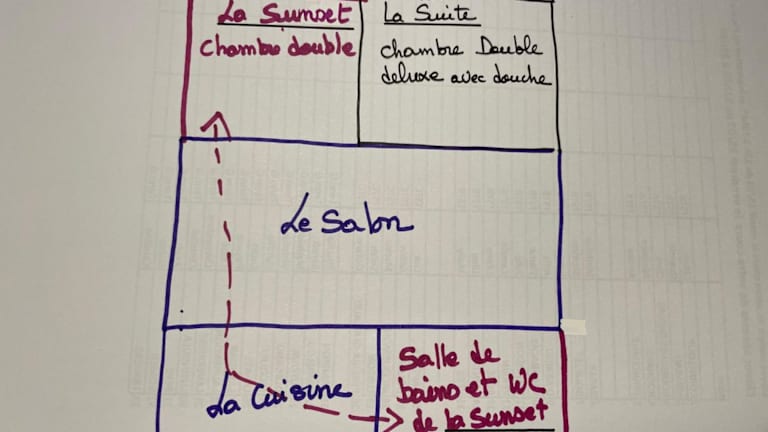 La Sunset
Chambre double
La Suite
chambre Double
deluxe avec douche
Le Salon
La Cuisine
Salle de
bains et WC
de la Sunset